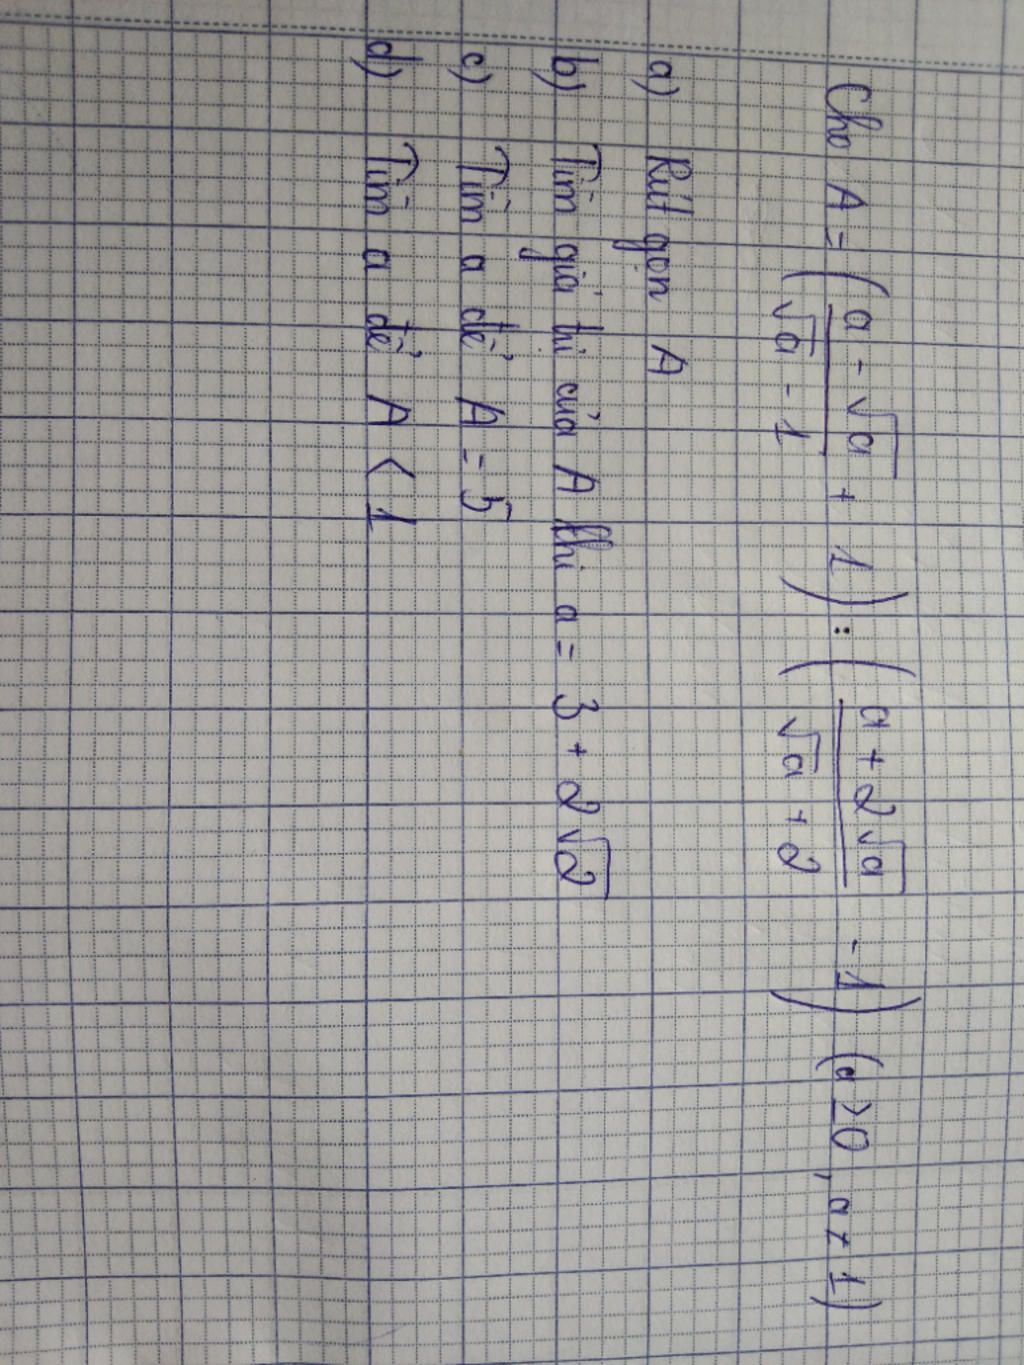 Cho A = ( (a - √a)/(√a - 1) + 1 ) : ( (a + 2√a)/(√a + 2) - 1 ) (a ≥ 0, a ≠ 1)
a) Rút gọn A
b) Tìm giá trị của A khi a = 3 + 2√2
c) Tìm a để A = 5
d) Tìm a để A < 1